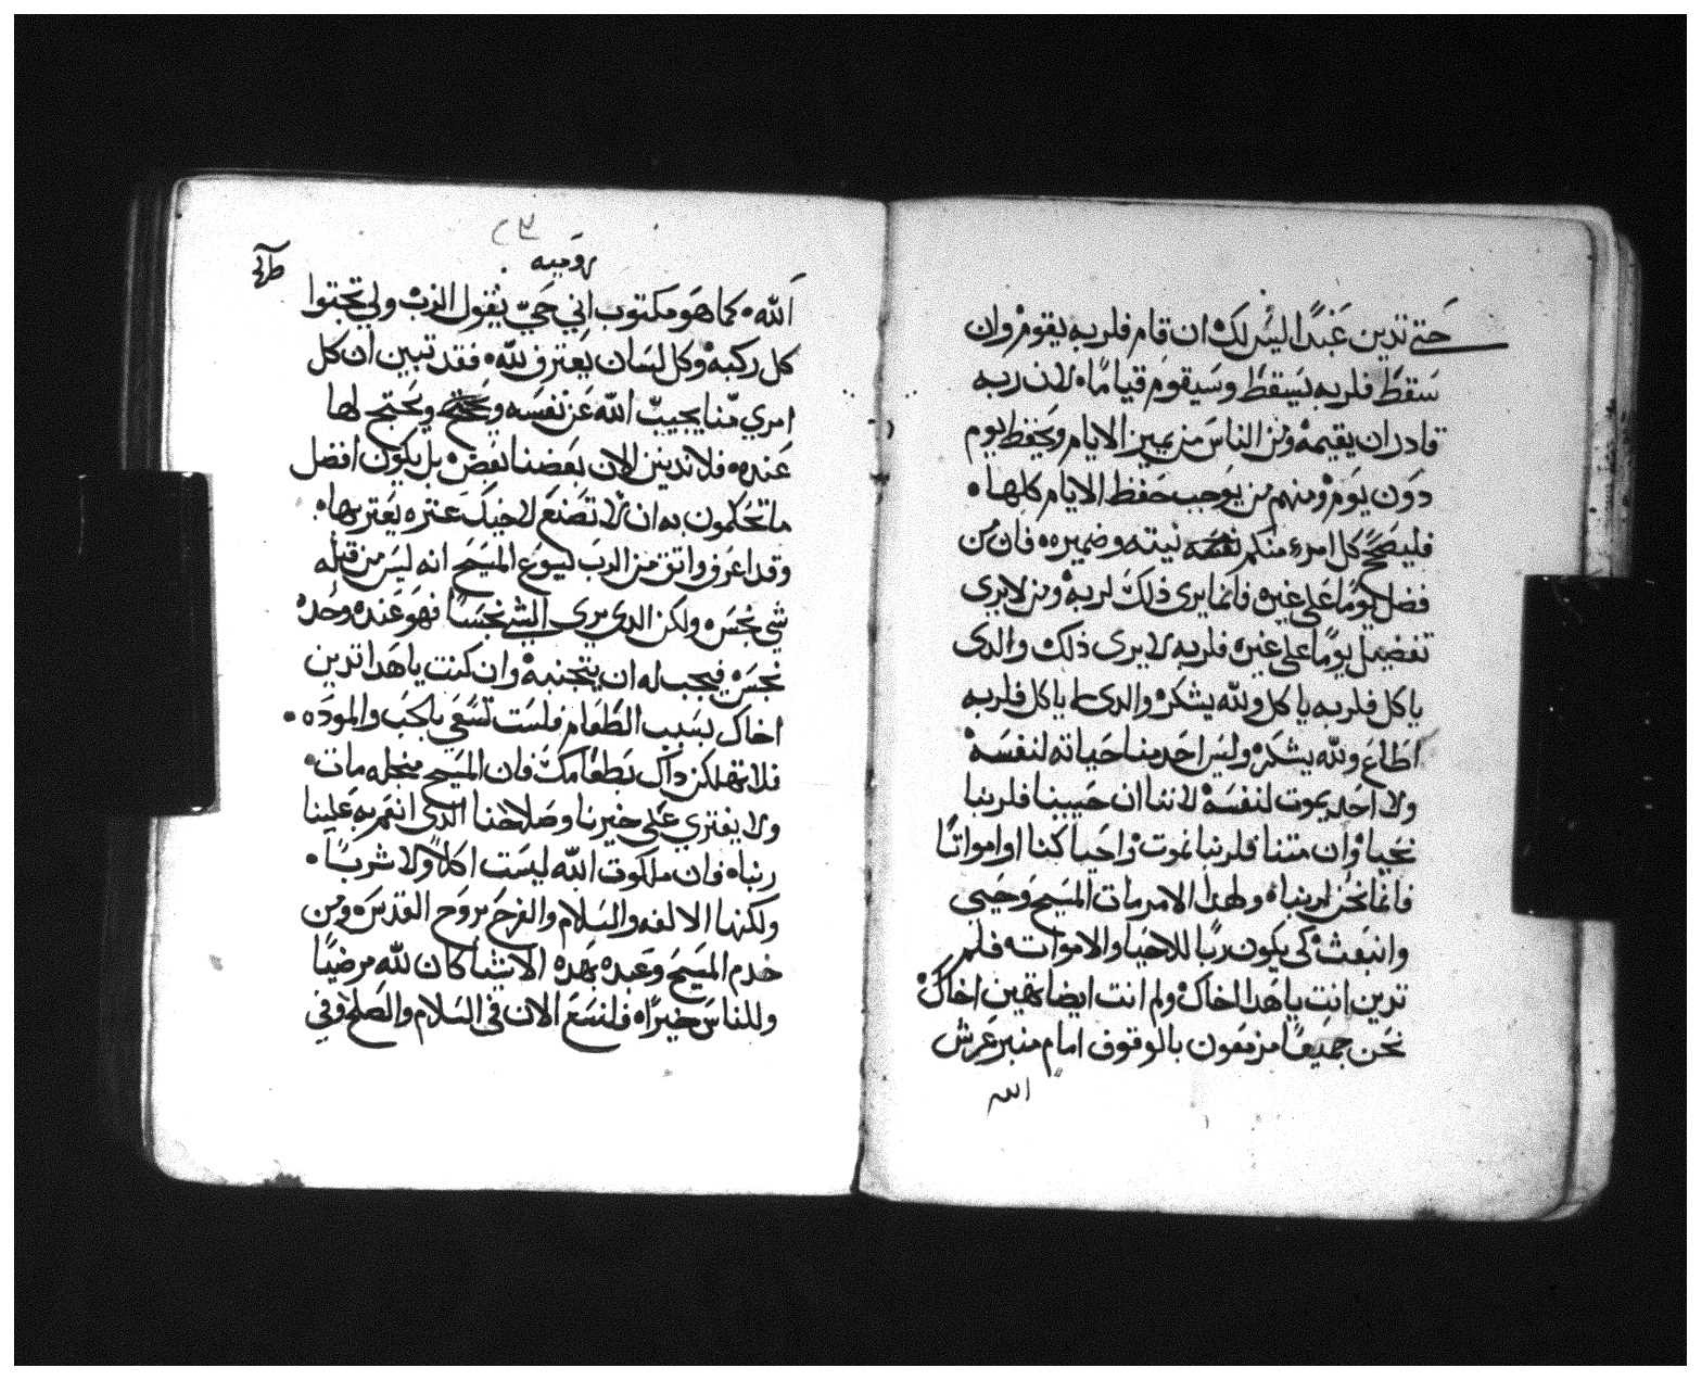 حتى تدين عبدًا اليس لك ان قام فلربه يقوم وان
سقط فلربه يسقط وسيقوم قيامًا لان ربه
قادر ان يقيمه ومن الناس من يميز الايام ويحفظ يوم
دون يوم ومنهم من يوجب حفظ الايام كلها
فليصحح كل امرء منكم نيته وضميره فان من
فضل يومًا على غيره فانما يرى ذلك لربه ومن لا يرى
تفضيل يومًا على غيره فلربه لا يرى ذلك والدى
ياكل فلربه ياكل ولله يشكر والدى لا ياكل فلربه
اطاع ولله يشكر وليس احد منا حياته لنفسه
ولا احد يموت لنفسه لاننا ان حيينا فلربنا
نحيا وان متنا فلربنا نموت واحيا كنا او امواتًا
فانما نحن لربنا ولهدا الامر مات المسيح وحيي
وانبعث كى يكون ربًا للاحيا والاموات فلم
تدين انت ياهدا اخاك ولم انت ايضا تهين اخاك
نحن جميعًا مزمعون بالوقوف امام منبر عرش
الله
٢٣
روميه
الله كما هو مكتوب اني حي يقول الرب ولي تجثوا
كل ركبه وكل لسان يعترف لله فقد تبين ان كل
امري منا يجيب الله عن نفسه ويحتج لها
عنده فلا ندينن الان بعضنا بعض بل يكون افضل
ما تحكمون به ان لا تصنع لاخيك عتره يعتر بها
وقد اعرف واتق من الرب ليسوع المسيح انه ليس من قبله
شي نجس ولكن الدى يرى الشي نجسًا فهو عنده وحده
نجس فيجب له ان يتجنبه وان كنت ياهدا تدين
اخاك بسبب الطعام فلست تسعي بالحب والموده
فلا تهلكن داك بطعامك فان المسيح من اجله مات
ولا يفترى على خيرنا وصلاحنا الدى انعم به علينا
ربنا فان ملكوت الله ليست اكلاً ولا شربًا
ولكنها الالفه والسلام والفرح بروح القدس ومن
خدم المسيح وعبده بهده الاشيا كان لله مرضيًا
وللناس خيرًا فلنسع الان في السلام والصلح وفي